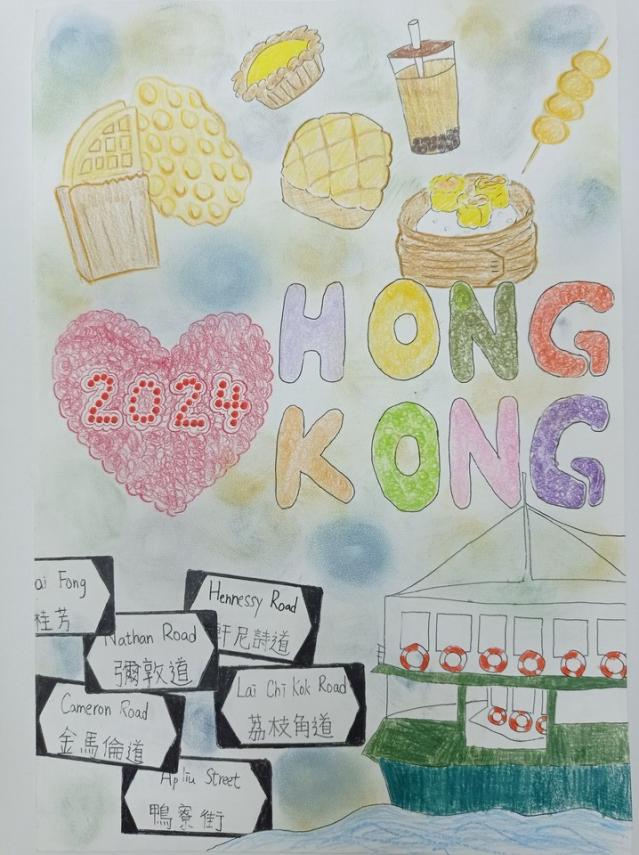 HONG
KONG
2024
ai Fong
桂芳
Hennessy Road
軒尼詩道
Nathan Road
彌敦道
Lai Chi Kok Road
荔枝角道
Cameron Road
金馬倫道
Apliu Street
鴨寮街